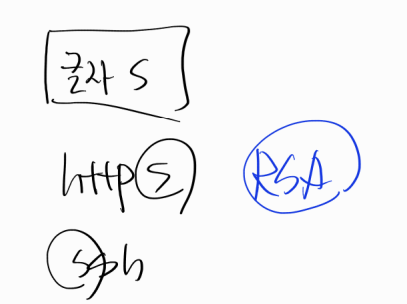 글자 S
https RSA
ssh